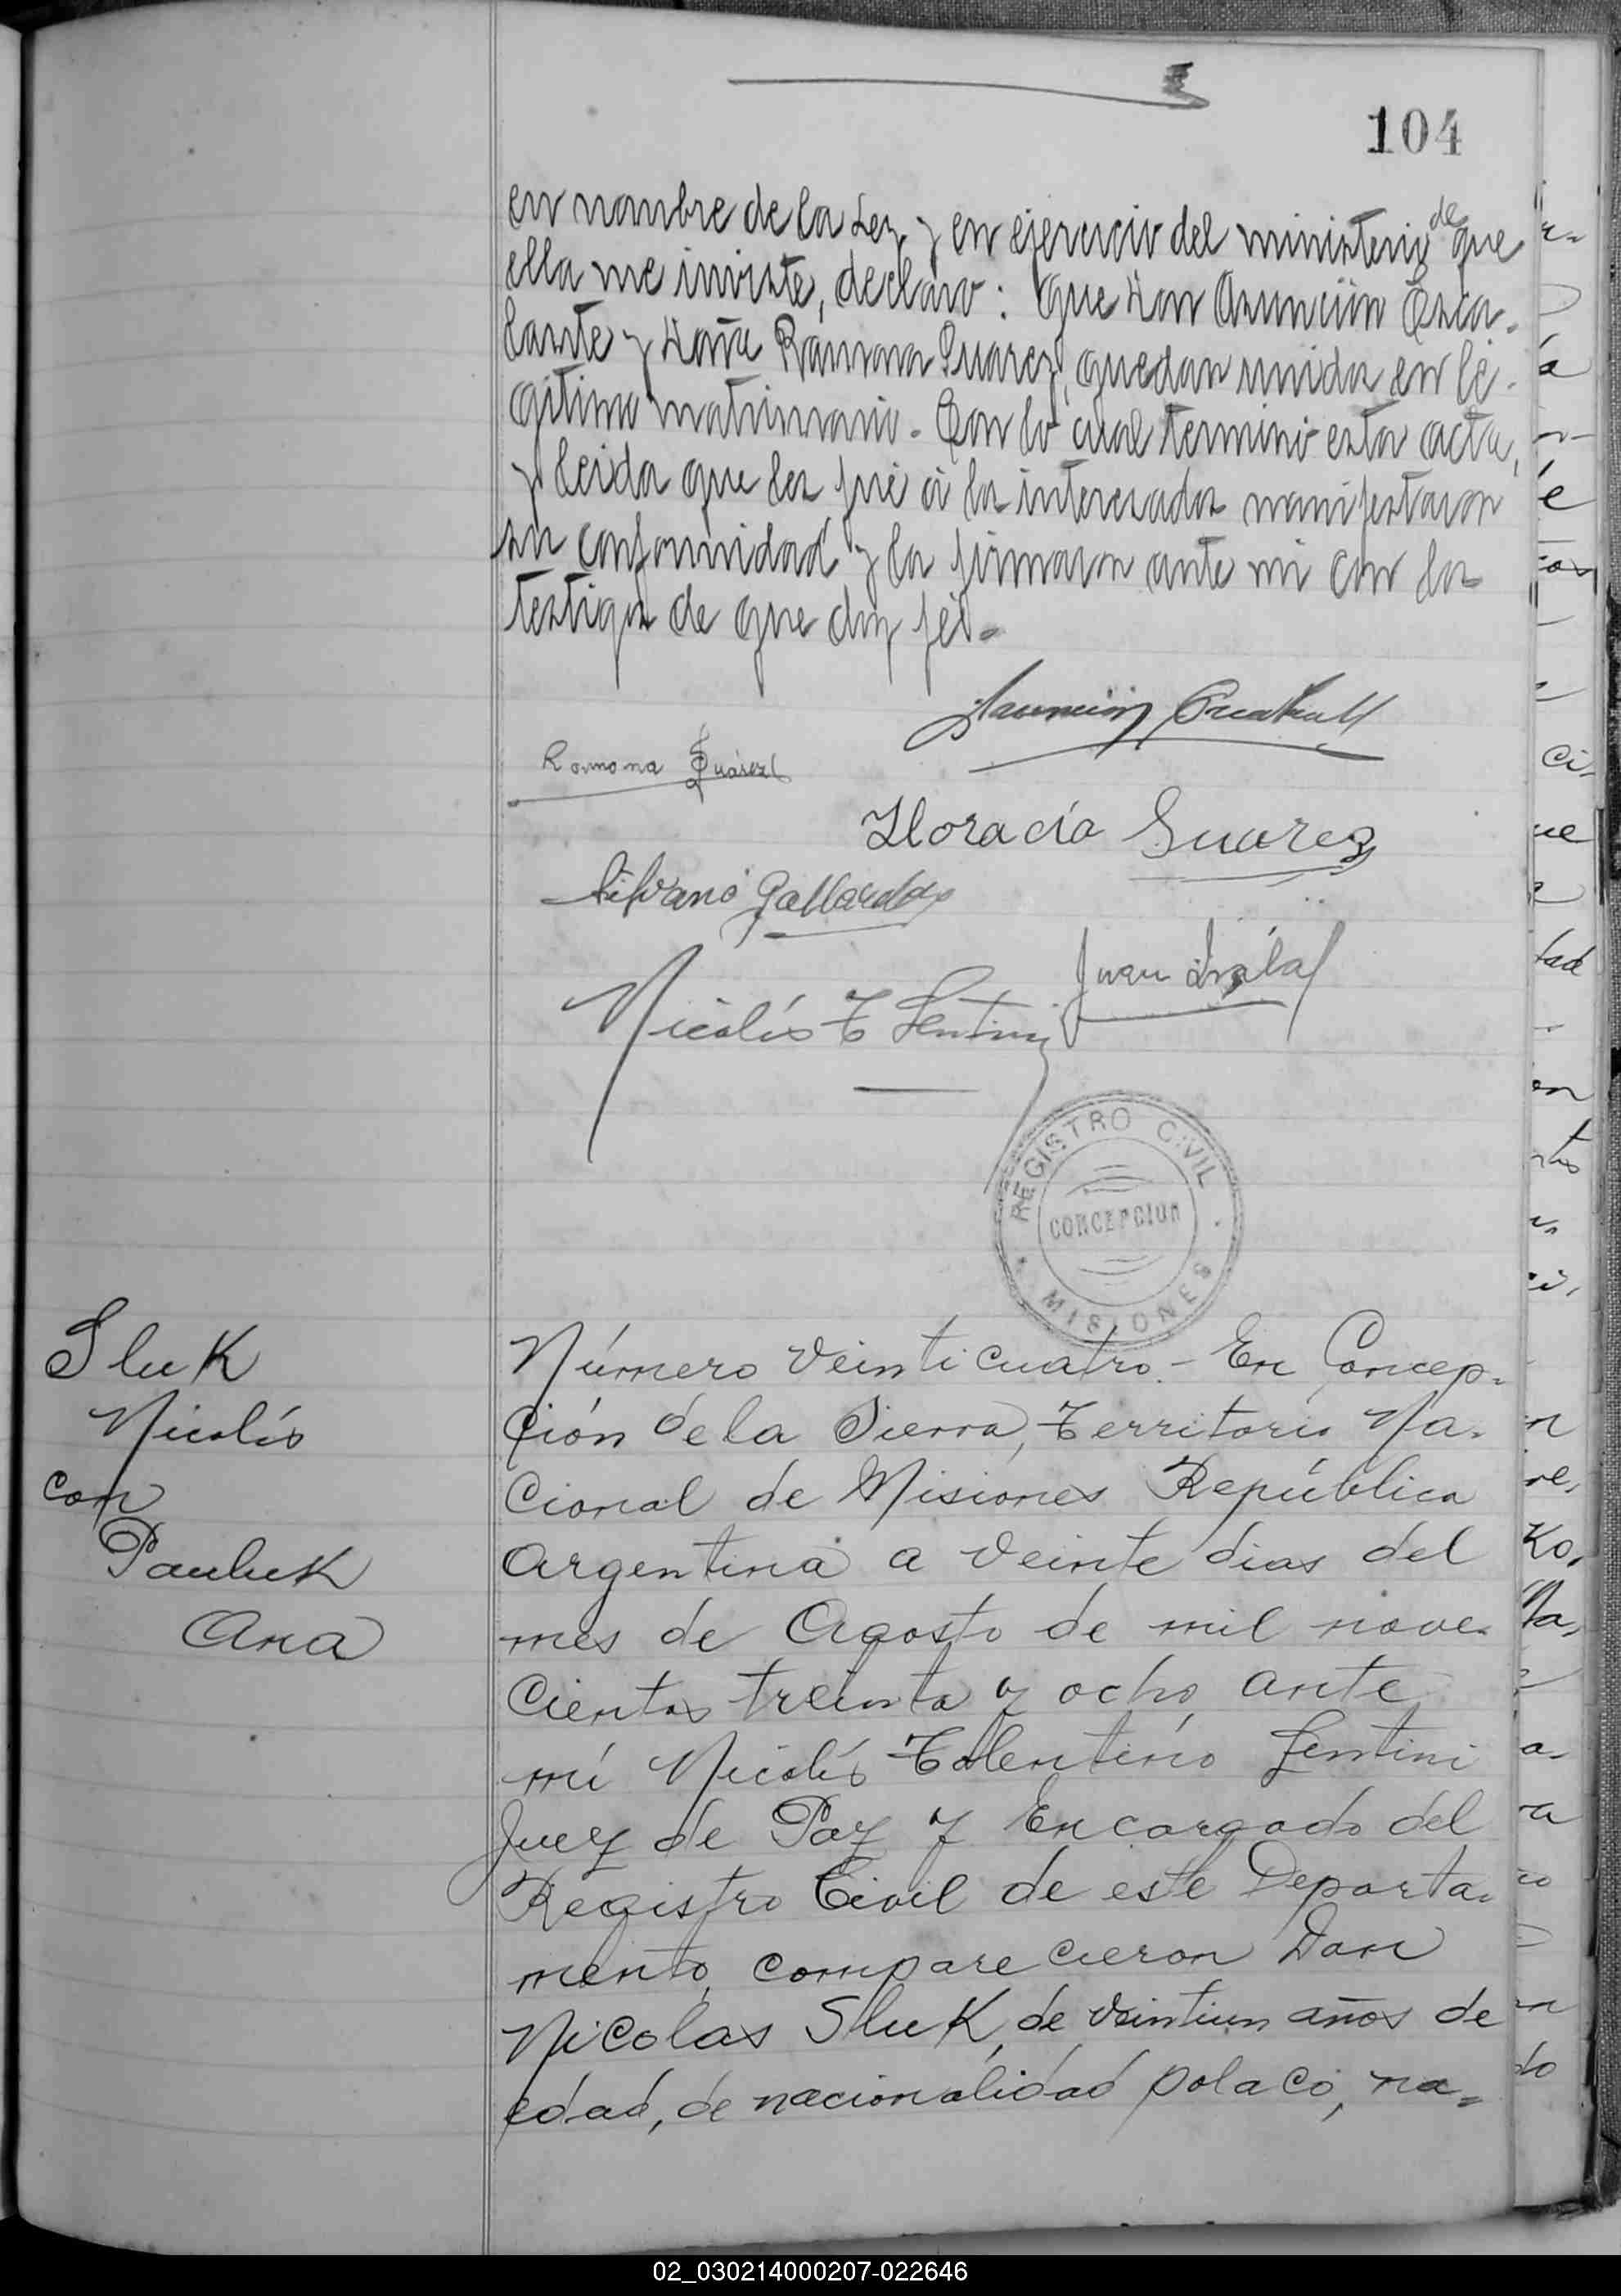 104
en nombre de la Ley y en ejercicio del ministerio de que
ella me inviste, declaro: Que Don Asunción Esca-
lante y Doña Ramona Suarez, quedan unidos en le-
gitimo matrimonio. Con lo cual terminó esta acta,
y leida que les fué á los interesados manifestaron
su conformidad y la firmaron ante mi con los
testigos de que doy fé.
Asunción
Ramona Suárez
Horacio Suarez
Silvano Gallardo
Juan
Nicolás T Lentini
REGISTRO CIVIL
CONCEPCION
MISIONES
Sluk
Nicolás
con
Pauluk
Ana
Número Veinticuatro.- En Concep-
ción de la Sierra, Territorio Na-
cional de Misiones República
Argentina a veinte dias del
mes de Agosto de mil nove-
cientos treinta y ocho, ante
mí Nicolás Tolentino Lentini
Juez de Paz y Encargado del
Registro Civil de este Departa-
mento, comparecieron Don
Nicolas Sluk, de veintiun años de
edad, de nacionalidad polaco, na-
02_030214000207-022646